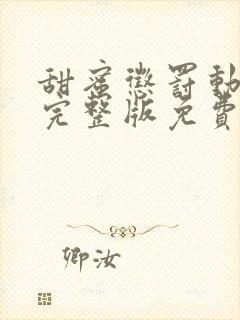 甜蜜懲罰動
完整版免費
卿汝